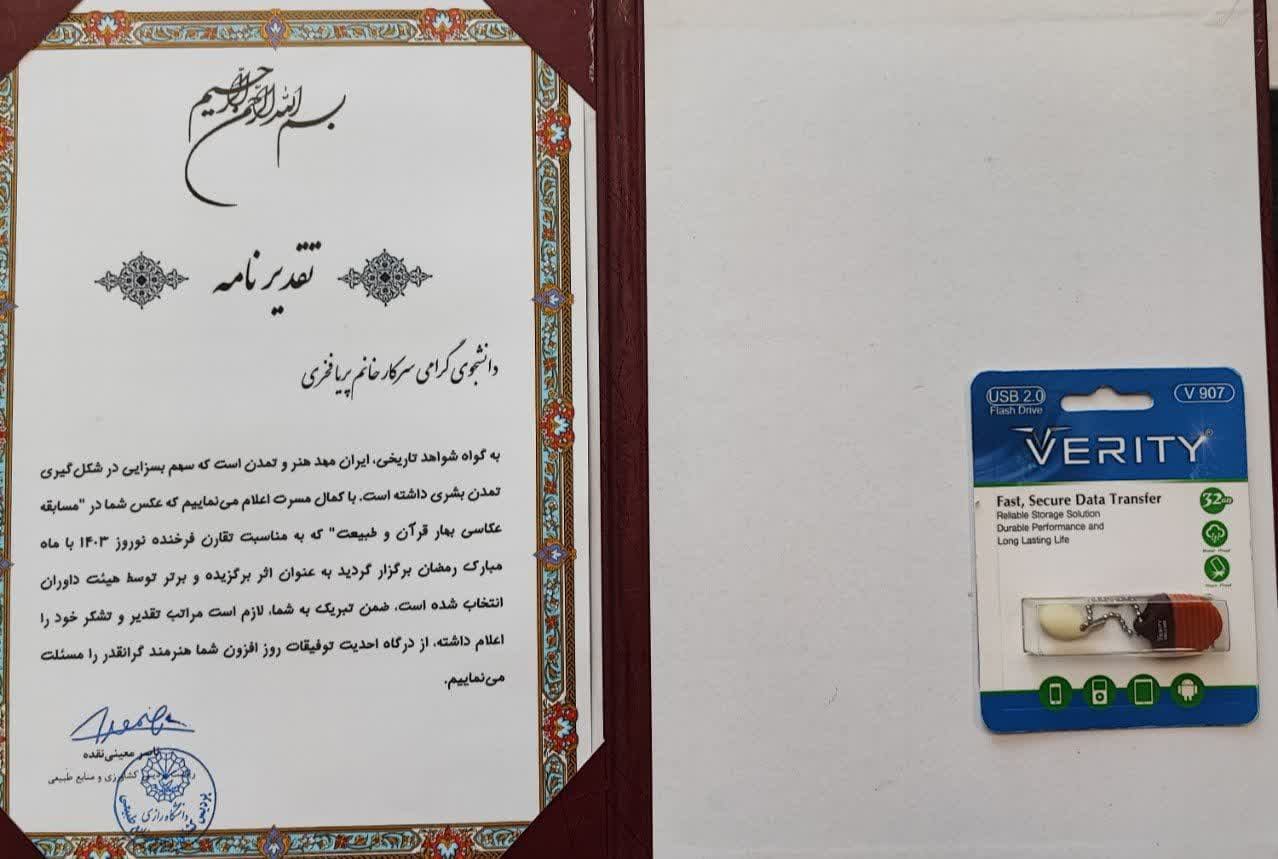 بسم الله الرحمن الرحیم
تقدیر نامه
دانشجوی گرامی سرکار خانم پریا فخری
به گواه شواهد تاریخی، ایران مهد هنر و تمدن است که سهم بسزایی در شکل‌گیری
تمدن بشری داشته است. با کمال مسرت اعلام می‌نماییم که عکس شما در "مسابقه
عکاسی بهار قرآن و طبیعت" که به مناسبت تقارن فرخنده نوروز ۱۴۰۳ با ماه
مبارک رمضان برگزار گردید به عنوان اثر برگزیده و برتر توسط هیئت داوران
انتخاب شده است. ضمن تبریک به شما، لازم است مراتب تقدیر و تشکر خود را
اعلام داشته، از درگاه احدیت توفیقات روز افزون شما هنرمند گرانقدر را مسئلت
می‌نماییم.
ناصر معینی نقده
کشاورزی و منابع طبیعی
دانشگاه رازی
USB 2.0
Flash Drive
V 907
VERITY
Fast, Secure Data Transfer
Reliable Storage Solution
Durable Performance and
Long Lasting Life
32GB
VERITY